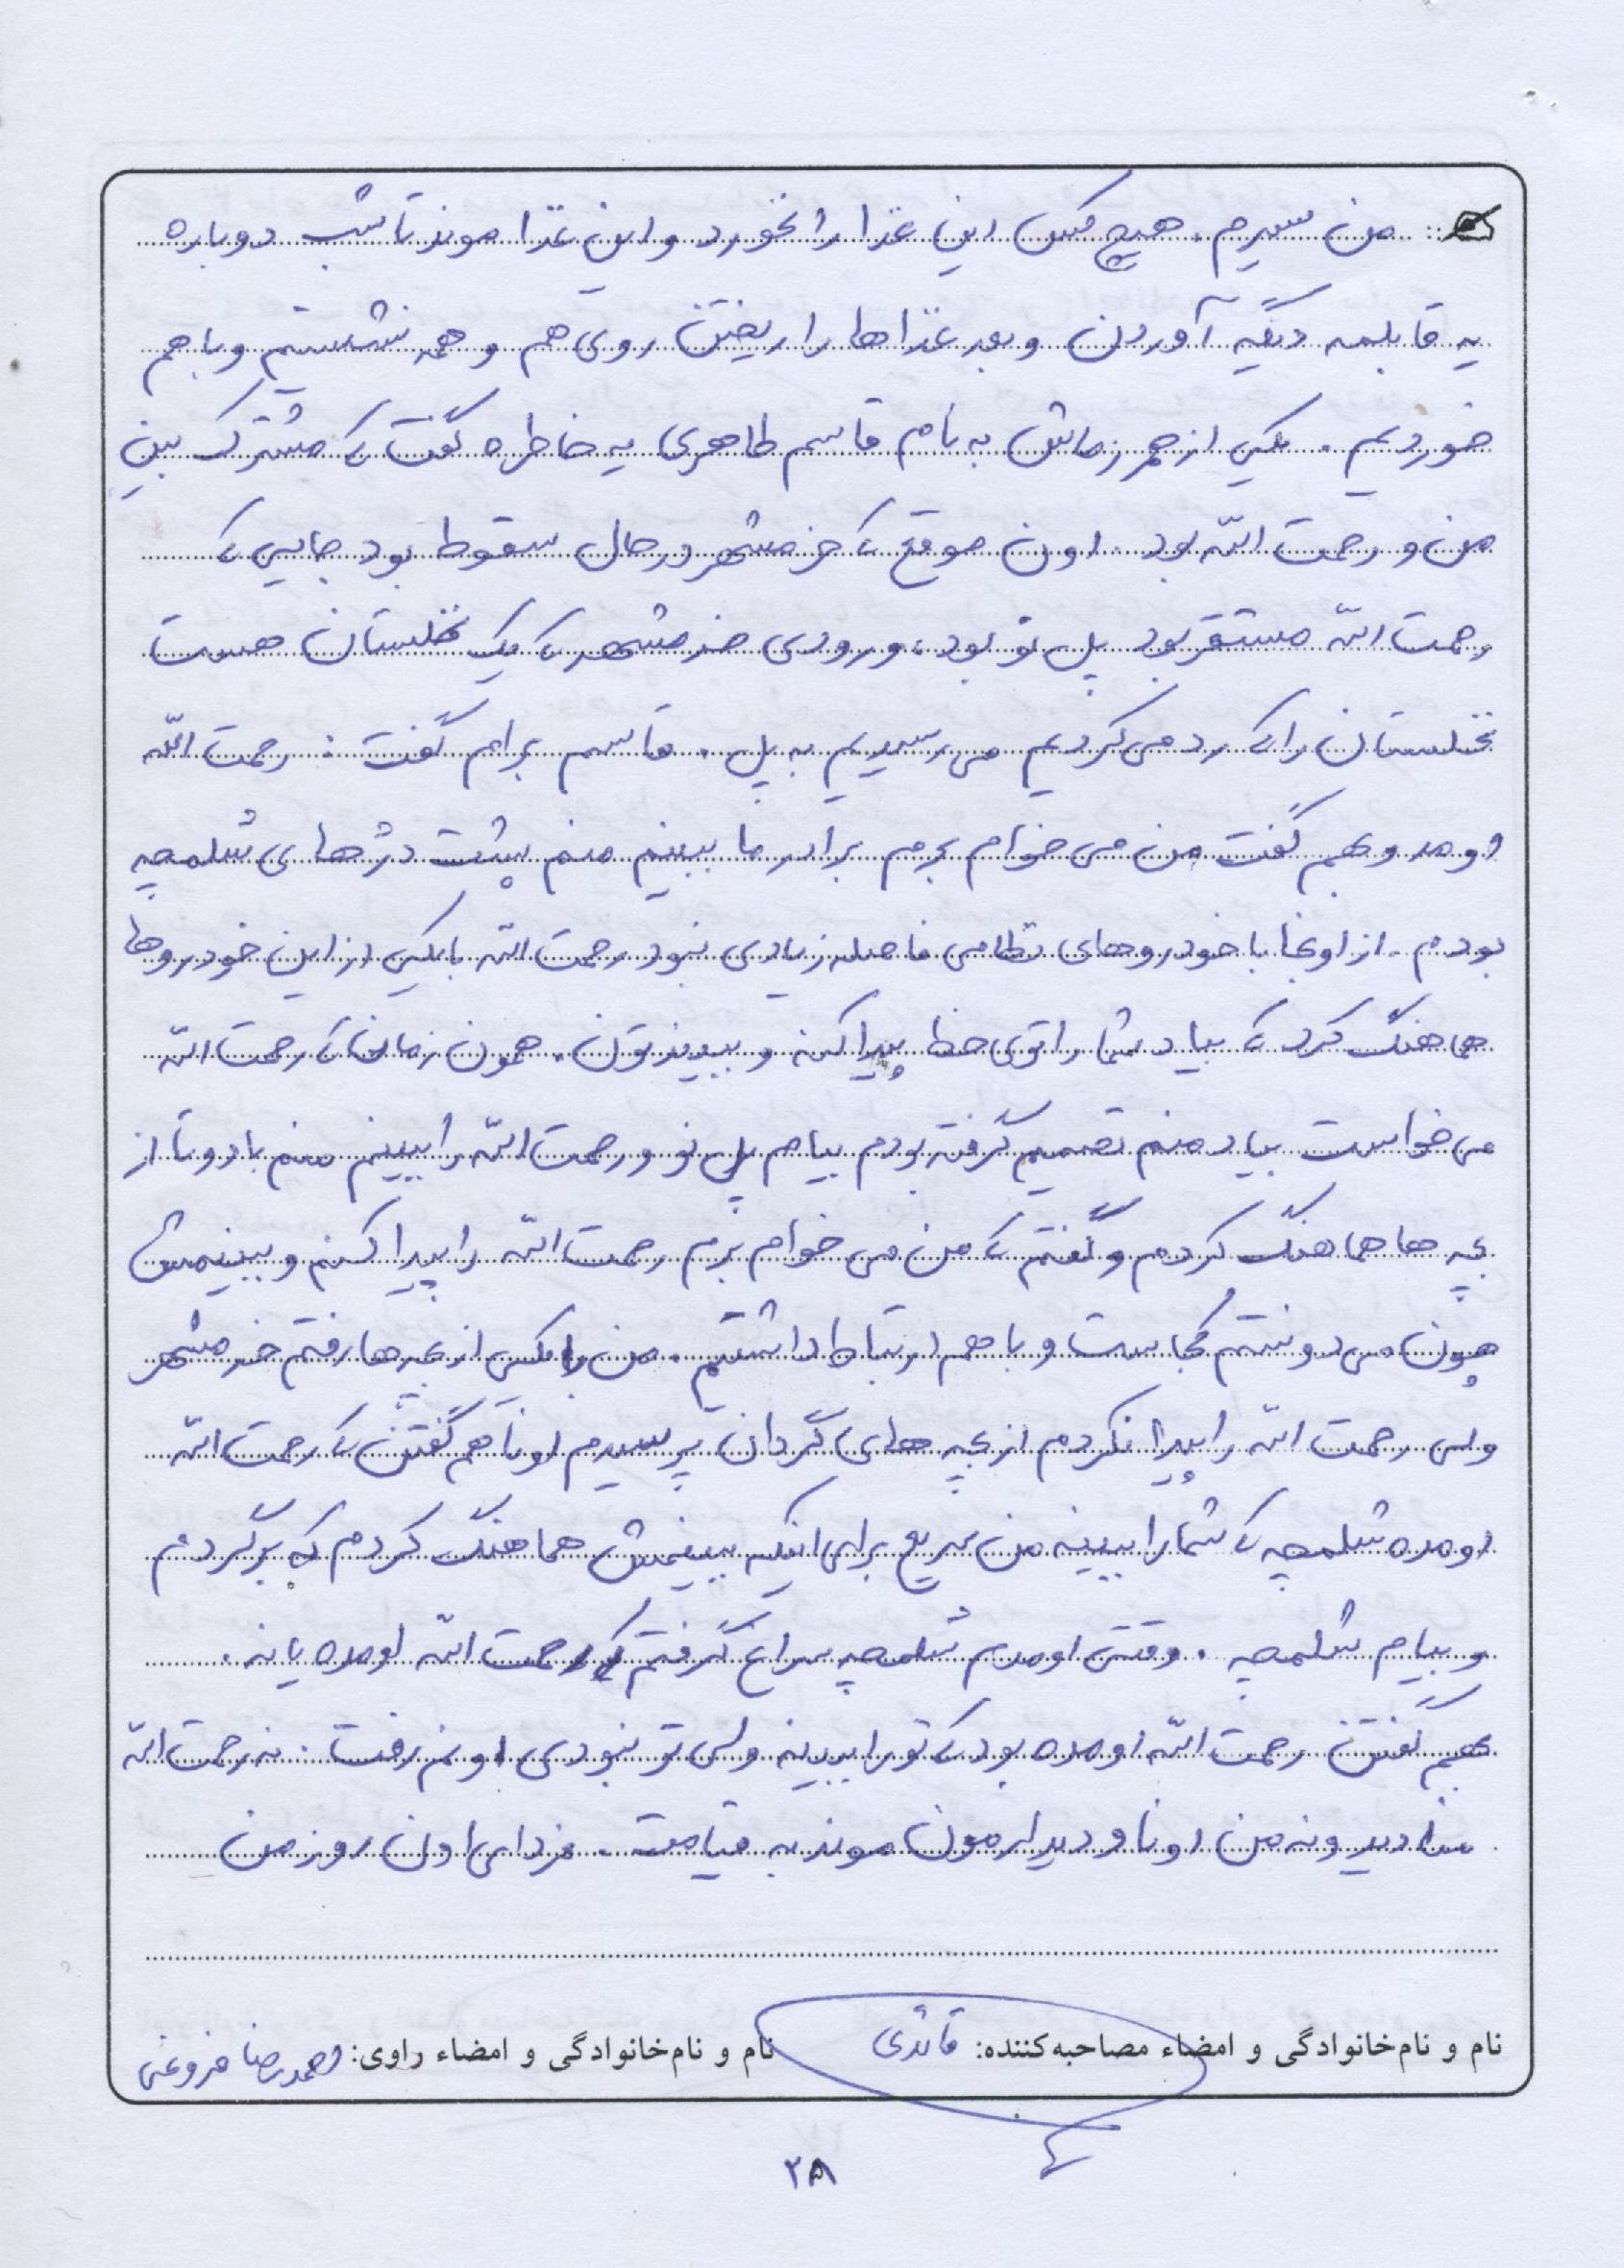 من سیرم. هیچ کس این غذا را نخورد و این غذا موند تا شب دوباره
یه قابلمه دیگه آوردن و بعد غذاها را ریختن روی هم و همه نشستیم و با هم
خوردیم. یکی از همرزماش به نام قاسم طاهری یه خاطره گفت که مشترک بین
من و رحمت الله بود. اون موقع که خرمشهر در حال سقوط بود جایی که
رحمت الله مستقر بود پل نو بود، ورودی خرمشهر که یک نخلستان هست
نخلستان را که رد می کردیم می رسیدیم به پل. قاسم برام گفت: رحمت الله
اومد و بهم گفت من می خوام برم برادر ما ببینم منم پشت دژهای شلمچه
بودم. از اونجا با خودروهای نظامی فاصله زیادی نبود رحمت الله با یکی از این خودروها
هماهنگ کرد که بیاد شما را توی خط پیدا کنه و ببیندتون. همون زمان که رحمت الله
می خواست بیاد منم تصمیم گرفته بودم بیام پل نو و رحمت الله را ببینم منم با دو تا از
بچه ها هماهنگ کردم و گفتم که من می خوام برم رحمت الله را پیدا کنم و ببینمش
چون می دونستم کجاست و با هم ارتباط داشتیم. من با یکی از بچه ها رفتم خرمشهر
ولی رحمت الله را پیدا نکردم از بچه های گردان پرسیدم اونا هم گفتن که رحمت الله
اومده شلمچه که شما را ببینه من سریع برای اینکه ببینمش هماهنگ کردم که برگردم
و بیام شلمچه. وقتی اومدم شلمچه سراغ گرفتم که رحمت الله اومده یا نه.
بهم گفتن رحمت الله اومده بود که تو را ببینه ولی تو نبودی اونم رفت. نه رحمت الله
منا دید و نه من اونا و دیدارمون موند به قیامت. فردای اون روز من
نام و نام‌خانوادگی و امضاء مصاحبه‌کننده: قائدی نام و نام‌خانوادگی و امضاء راوی: احمدرضا فروغی
۲۸